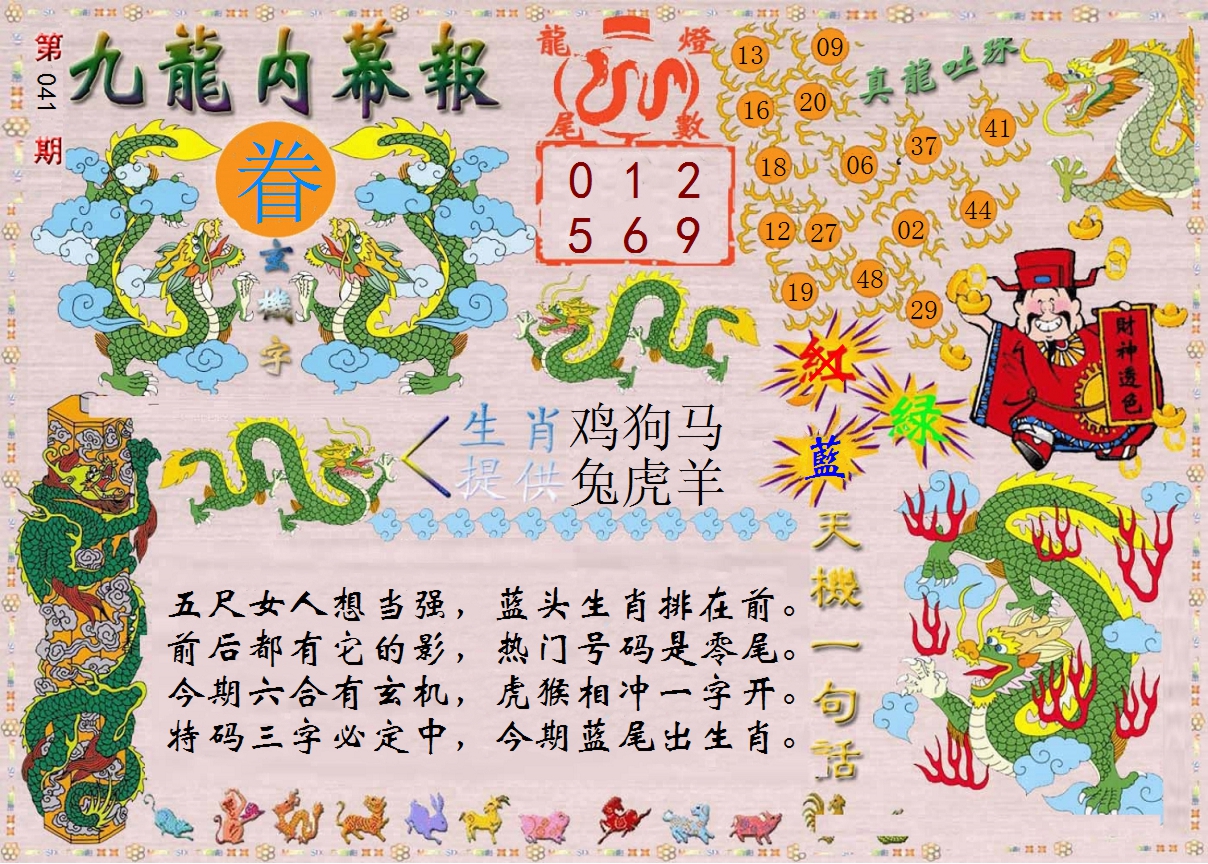 第041期
九龍内幕報
眷
玄機字
龍燈尾數
0 1 2
5 6 9
真龍吐珠
13 09
16 20
37 41
18 06
44
12 27 02
48
19 29
財神透色
紅
綠
藍
生肖 鸡狗马
提供 兔虎羊
天機一句話
五尺女人想当强，蓝头生肖排在前。
前后都有它的影，热门号码是零尾。
今期六合有玄机，虎猴相冲一字开。
特码三字必定中，今期蓝尾出生肖。